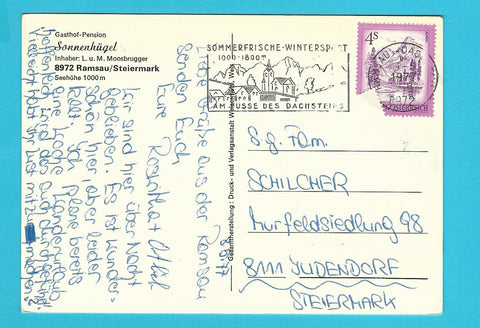 Gasthof-Pension
Sonnenhügel
Inhaber: L. u. M. Moosbrugger
8972 Ramsau/Steiermark
Seehöhe 1000 m
8.9.77
Grüße aus der Ramsau
Senden Euch
Eure Roswitha +
Wir sind hier über Nacht
geblieben. Es ist wunder-
schön hier aber leider
kalt. Ich plane bereits
eine
Vielleicht ihr Lust mitzumachen?
SOMMERFRISCHE-WINTERSPORT
1000-1800m
AM FUSSE DES DACHSTEINS
4S
REPUBLIK ÖSTERREICH
8972
Gesamtherstellung: Druck- und Verlagsanstalt
S.g. Fam.
SCHILCHER
Murfeldsiedlung 98
8111 JUDENDORF
STEIERMARK